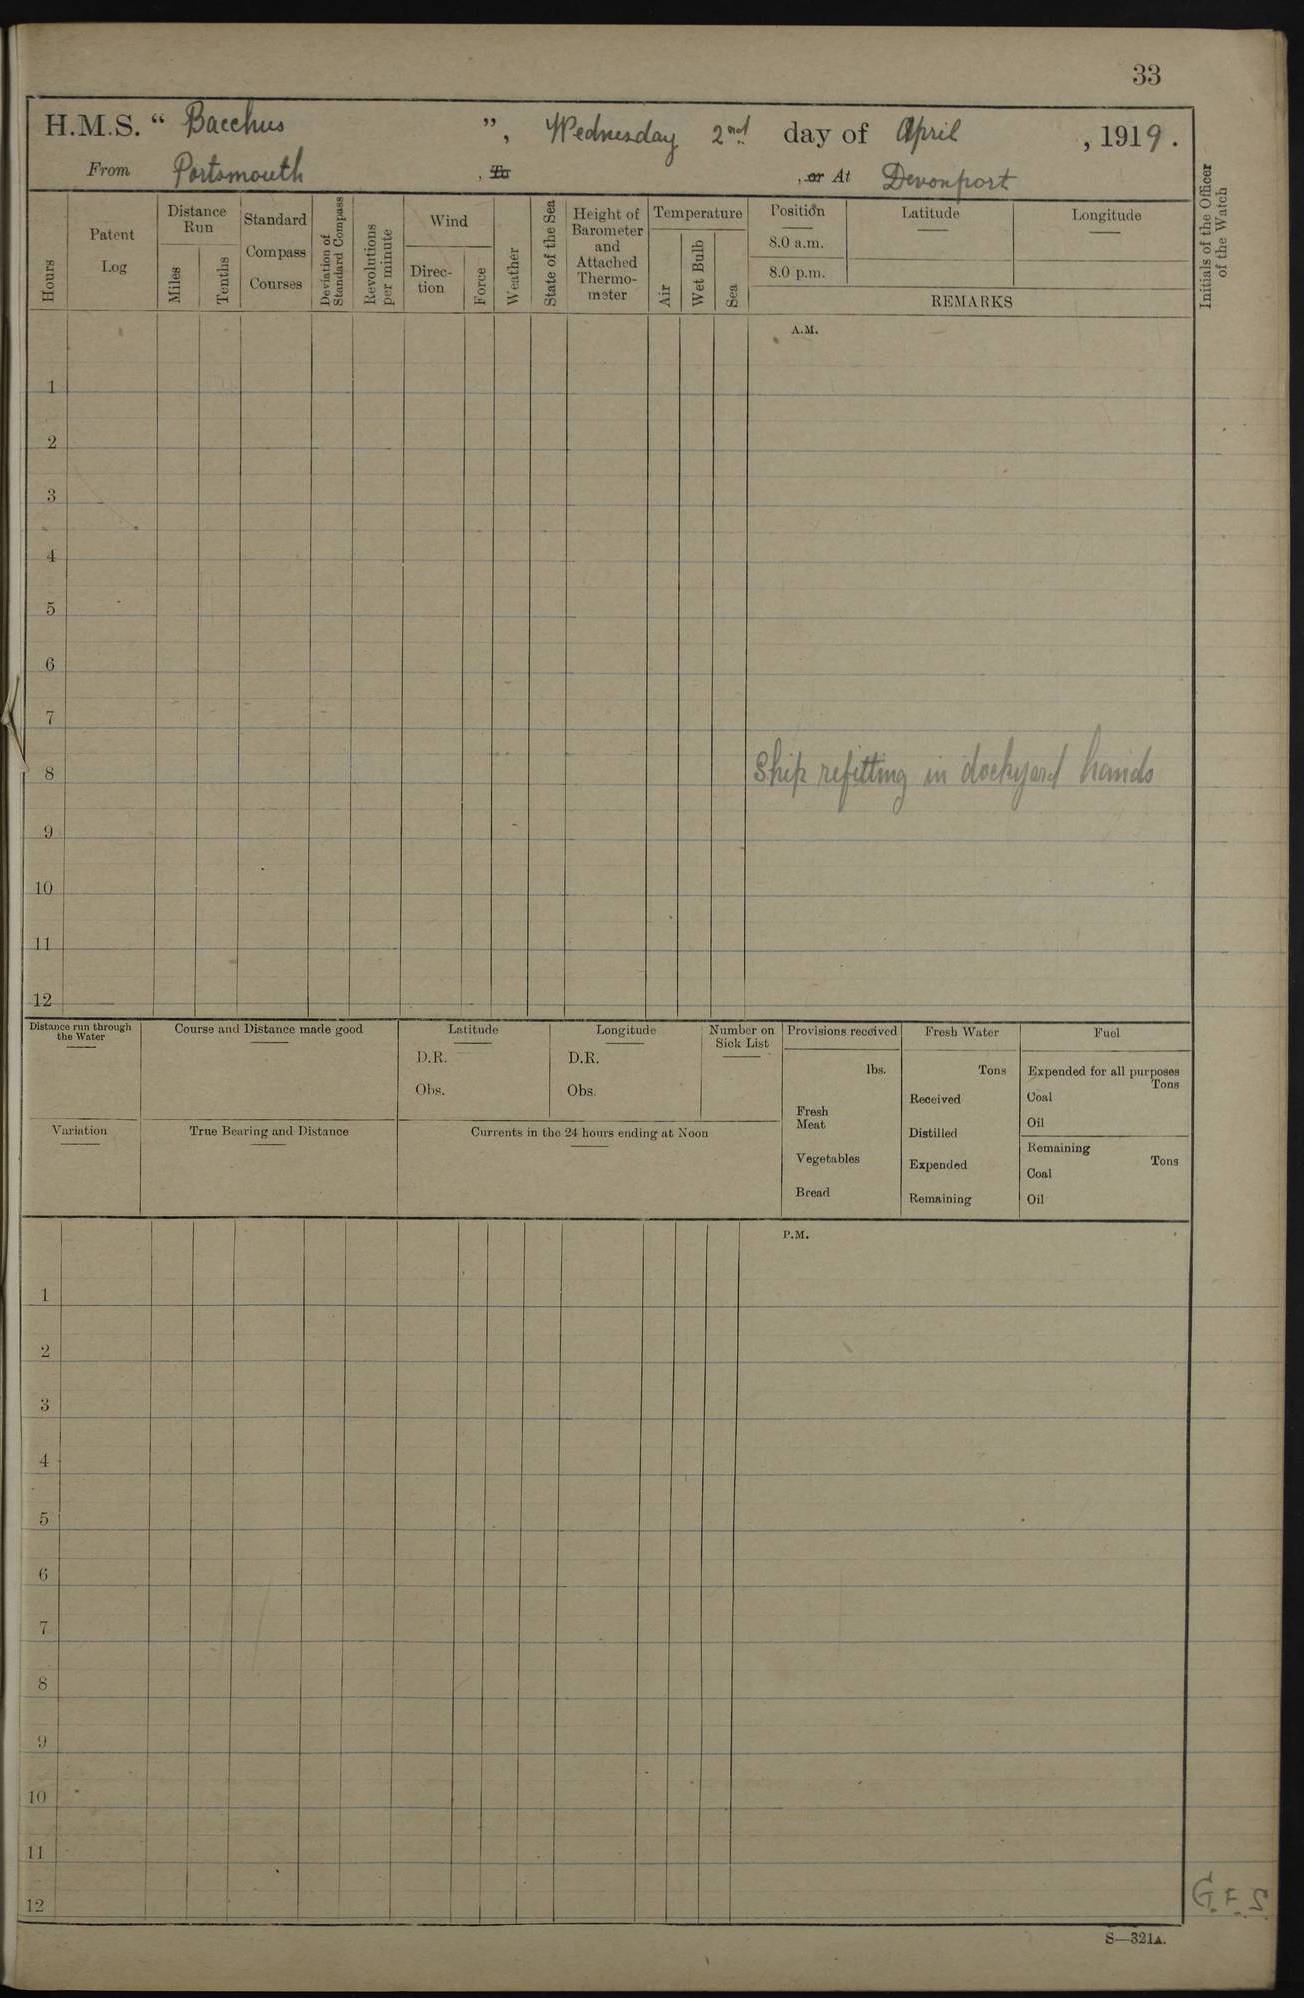 33
H.M.S. “ Bacchus ”, Wednesday 2nd day of April , 1919.
From Portsmouth , To , or At Devonport
Hours
Patent Log
Distance Run
Miles
Tenths
Standard Compass Courses
Deviation of Standard Compass
Revolutions per minute
Wind
Direc-tion
Force
Weather
State of the Sea
Height of Barometer and Attached Thermo-meter
Temperature
Air
Wet Bulb
Sea
Position
Latitude
Longitude
8.0 a.m.
8.0 p.m.
REMARKS
Initials of the Officer of the Watch
A.M.
1
2
3
4
5
6
7
8 Ship refitting in dockyard hands
9
10
11
12
Distance run through the Water
Course and Distance made good
Latitude
D.R.
Obs.
Longitude
D.R.
Obs.
Number on Sick List
Provisions received
lbs.
Fresh Meat
Vegetables
Bread
Fresh Water
Tons
Received
Distilled
Expended
Remaining
Fuel
Expended for all purposes
Tons
Coal
Oil
Remaining
Tons
Coal
Oil
Variation
True Bearing and Distance
Currents in the 24 hours ending at Noon
P.M.
1
2
3
4
5
6
7
8
9
10
11
12
G.F.S.
S—321A.